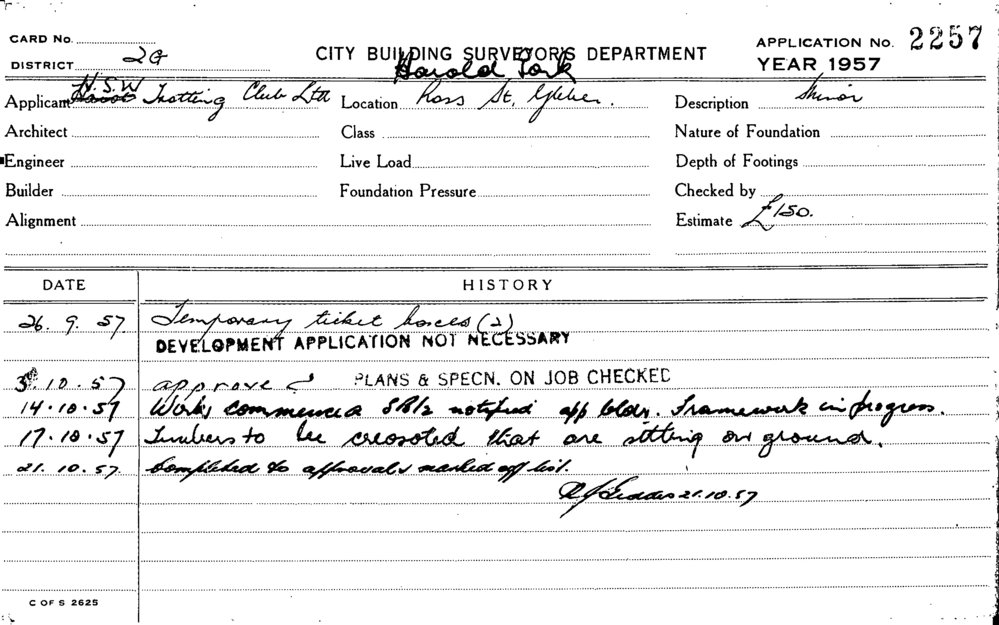 CARD No.
DISTRICT 2G
CITY BUILDING SURVEYOR'S DEPARTMENT
APPLICATION No. 2257
YEAR 1957
Harold Park
Applicant N.S.W Trotting Club Ltd
Location Ross St, Glebe.
Description Minor
Architect
Class
Nature of Foundation
Engineer
Live Load
Depth of Footings
Builder
Foundation Pressure
Checked by
Alignment
Estimate £150.
DATE
HISTORY
26. 9. 57 Temporary ticket boxes (2)
DEVELOPMENT APPLICATION NOT NECESSARY
3.10.57 approved PLANS & SPECN. ON JOB CHECKED
14.10.57 Works commenced notified app bldr. Framework in progress.
17.10.57 Timbers to be creosoted that are sitting on ground.
21.10.57 Completed to approval & marked off list.
21.10.57
C OF S 2625